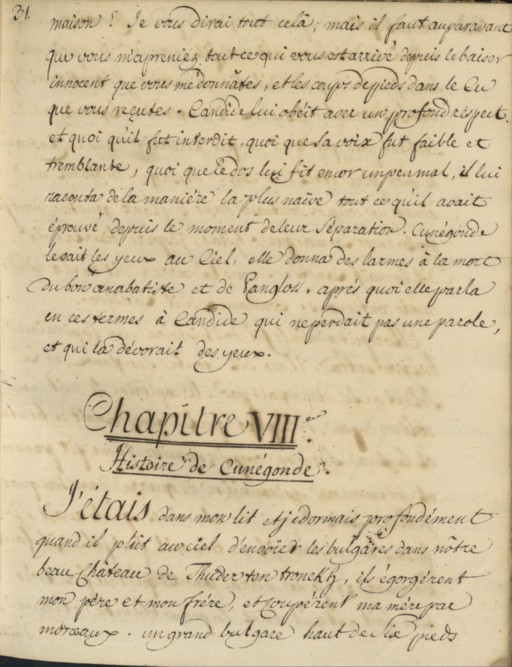 31.
maison ? Je vous dirai tout celà ; mais il faut auparavant
que vous m'apreniez tout ce qui vous est arrivé depuis le baiser
innocent que vous me donnâtes, et les coups de pieds dans le Cu
que vous reçutes. Candide lui obéit avec un profond respect.
et quoi qu'il fut interdit, quoi que sa voix fut faible et
tremblante, quoi que le dos lui fit encor un peu mal, il lui
raconta de la maniére la plus naïve tout ce qu'il avait
éprouvé depuis le moment de leur Séparation. Cunégonde
levait les yeux au Ciel, elle donna des larmes à la mort
Du bon anabatiste et de Pangloss. après quoi elle parla
en ces termes à Candide qui ne perdait pas une parole,
et qui la dévorait des yeux.
Chapitre VIII.e
Histoire de Cunégonde.
J'étais dans mon lit et je dormais profondément
quand il plût au ciel d'envoier les bulgares dans nôtre
beau Château de Thunder ten tronckh, ils égorgérent
mon pére et mon frére, et coupérent ma mére par
morceaux. un grand bulgare haut de six pieds